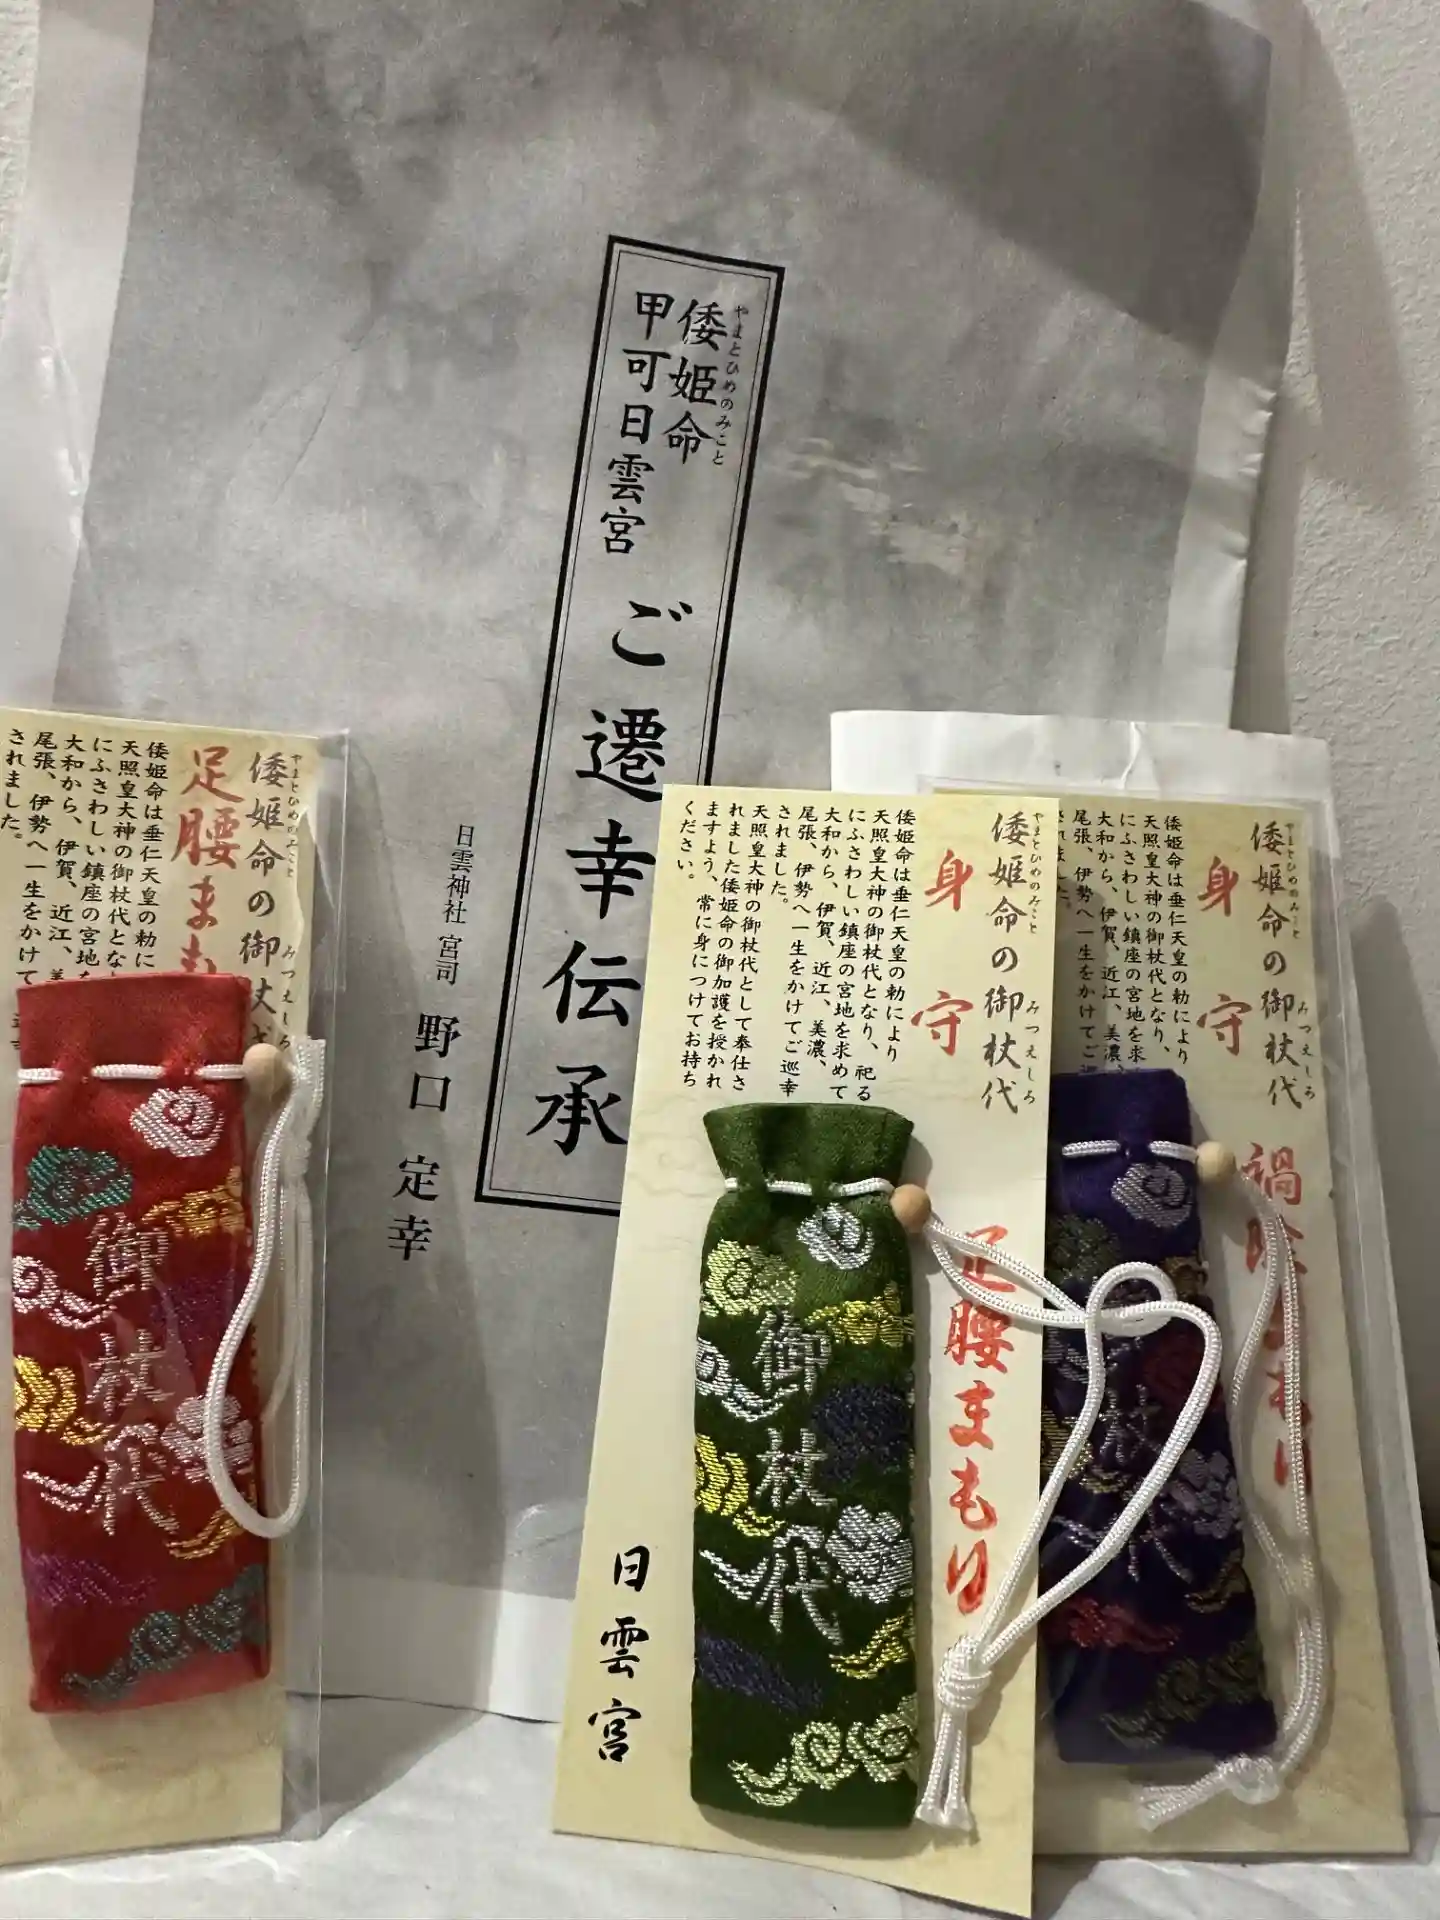 倭姫命
やまとひめのみこと
甲可日雲宮
ご遷幸伝承
日雲神社 宮司 野口 定幸
倭姫命の御杖代
やまとひめのみこと
みつえしろ
足腰まも
倭姫命は垂仁天皇の勅に
天照皇大神の御杖代とな
にふさわしい鎮座の宮地を
大和から、伊賀、近江、美
尾張、伊勢へ一生をかけて
されました。
御杖代
倭姫命の御杖代
やまとひめのみこと
みつえしろ
身守
足腰まもり
倭姫命は垂仁天皇の勅により
天照皇大神の御杖代となり、祀る
にふさわしい鎮座の宮地を求めて
大和から、伊賀、近江、美濃、
尾張、伊勢へ一生をかけてご巡幸
されました。
天照皇大神の御杖代として奉仕さ
れました倭姫命の御加護を授かれ
ますよう、常に身につけてお持ち
ください。
御杖代
日雲宮
倭姫命の御杖代
やまとひめのみこと
みつえしろ
身守
禍除まもり
倭姫命は垂仁天皇の勅により
天照皇大神の御杖代となり、
にふさわしい鎮座の宮地を求
大和から、伊賀、近江、美濃、
尾張、伊勢へ一生をかけてご巡
されました。
杖代